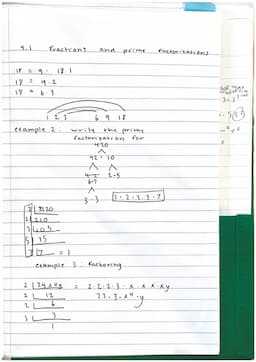 4.1 Fractions and prime factorizations
18 = 9 · 18.1
18 = 9.2
18 = 6.3
1 2 3 6 9 18
example 2: write the prime
factorization for
420
42 · 10
4·2 2·5
6·7
2·3
2·2·3·5·7
2 420
2 210
3 105
5 35
7 7 = 1
example 3: factoring
2 24x4y = 2·2·2·3·x·x·x·xy
2 12 23·3·x4·y
2 6
3 3
1